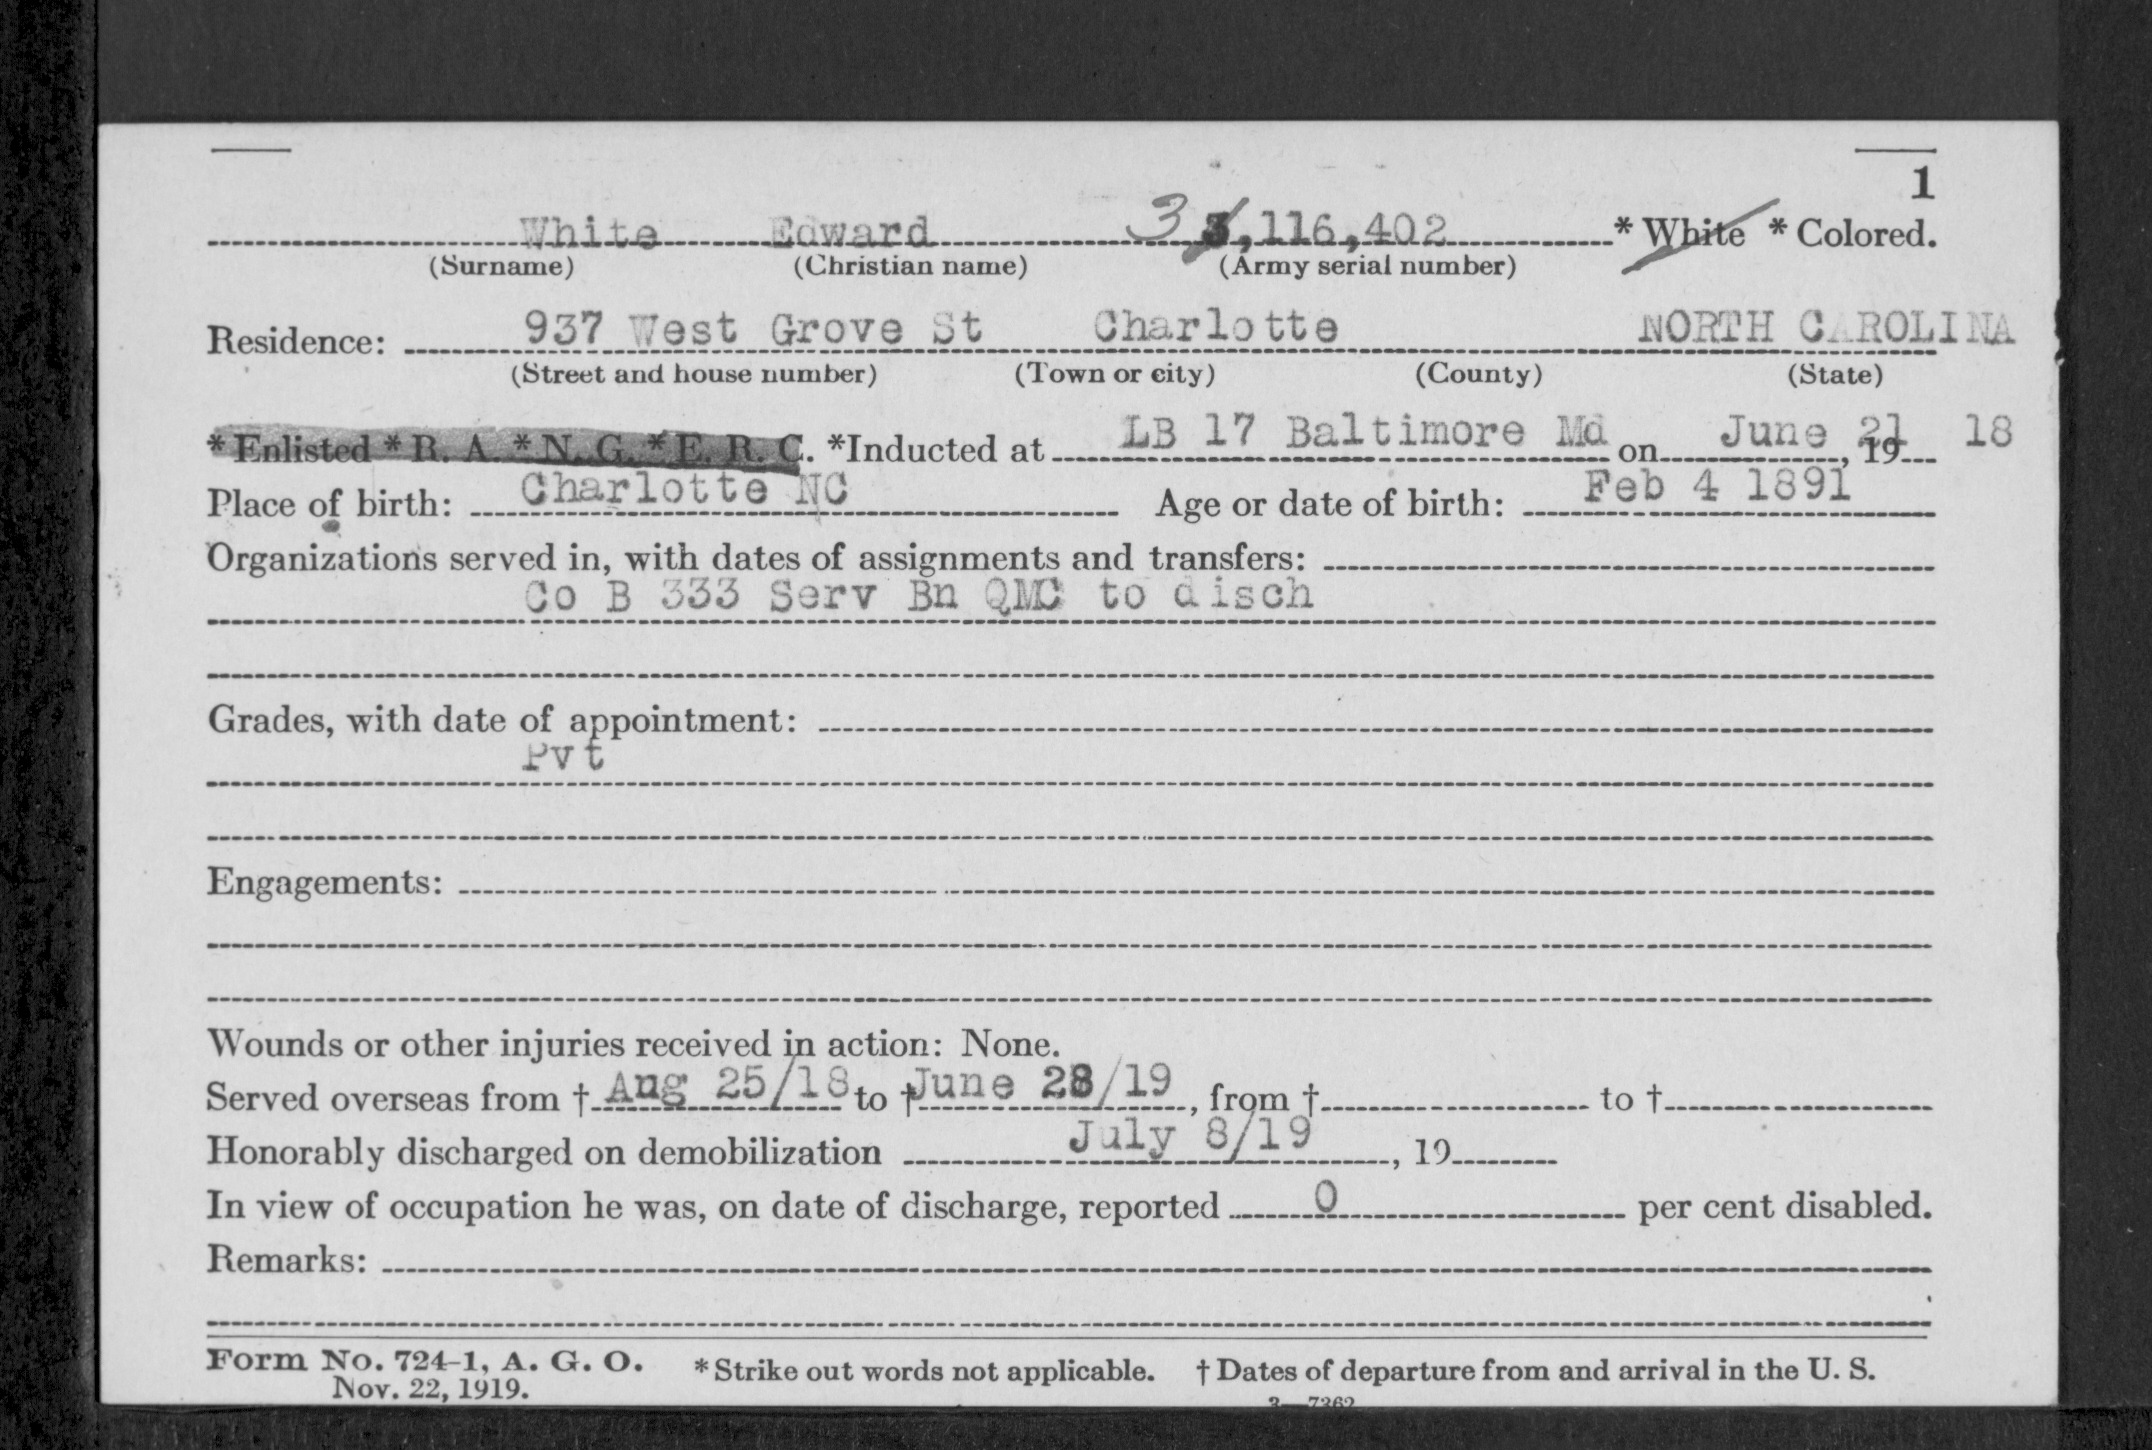 1
White Edward 3 3,116,402 * White * Colored.
(Surname) (Christian name) (Army serial number)
937 West Grove St Charlotte NORTH CAROLINA
Residence:
(Street and house number) (Town or city) (County) (State)
* Enlisted * R. A. * N. G. * E. R. C. *Inducted at LB 17 Baltimore Md on June 21, 19 18
Place of birth: Charlotte NC Age or date of birth: Feb 4 1891
Organizations served in, with dates of assignments and transfers:
Co B 333 Serv Bn QMC to disch
Grades, with date of appointment:
Pvt
Engagements:
Wounds or other injuries received in action: None.
Served overseas from † Aug 25/18 to † June 28/19, from † to †
Honorably discharged on demobilization July 8/19, 19
In view of occupation he was, on date of discharge, reported 0 per cent disabled.
Remarks:
Form No. 724-1, A. G. O. * Strike out words not applicable. † Dates of departure from and arrival in the U. S.
Nov. 22, 1919.
3—7362